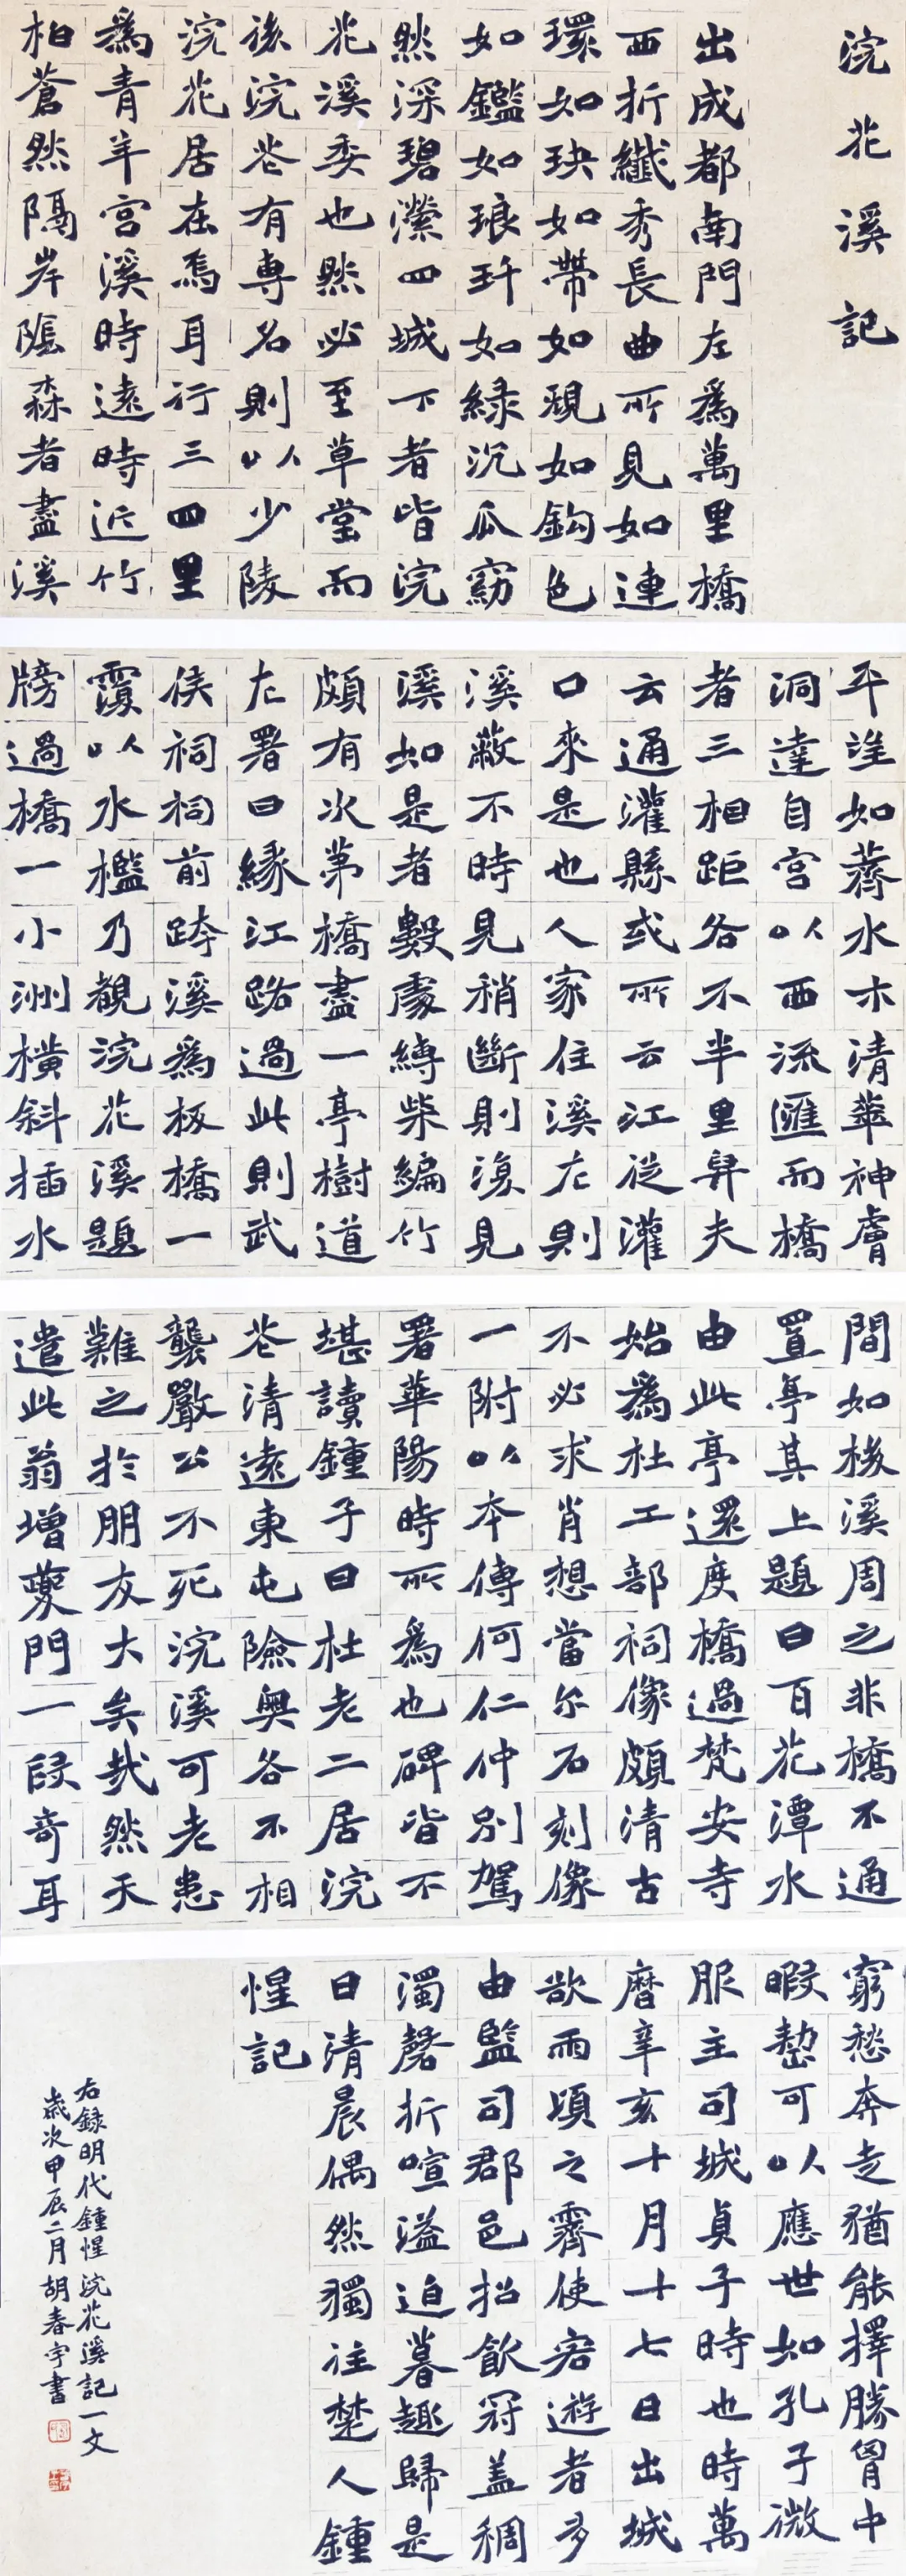 浣花溪記
出成都南門左爲萬里橋
西折纖秀長曲所見如連
環如玦如帶如規如鈎色
如鑑如琅玕如緑沉瓜窈
然深碧瀠回城下者皆浣
花溪委也然必至草堂而
後浣花有專名則以少陵
浣花居在焉耳行三四里
爲青羊宮溪時遠時近竹
柏蒼然隔岸陰森者盡溪
平望如薺水木清華神膚
洞達自宮以西流匯而橋
者三相距各不半里舁夫
云通灌縣或所云江從灌
口來是也人家住溪左則
溪蔽不時見稍斷則復見
溪如是者數處縛柴編竹
頗有次第橋盡一亭樹道
左署曰緣江路過此則武
侯祠祠前跨溪爲板橋一
覆以水檻乃覩浣花溪題
牓過橋一小洲横斜插水
間如梭溪周之非橋不通
置亭其上題曰百花潭水
由此亭還度橋過梵安寺
始爲杜工部祠像頗清古
不必求肖想當尔石刻像
一附以本傳何仁仲别駕
署華陽時所爲也碑皆不
堪讀鍾子曰杜老二居浣
花清遠東屯險奥各不相
襲嚴公不死浣溪可老患
難之於朋友大矣哉然天
遣此翁增夔門一段奇耳
窮愁奔走猶能擇勝胷中
暇整可以應世如孔子微
服主司城貞子時也時萬
曆辛亥十月十七日出城
欲雨頃之霽使客遊者多
由監司郡邑招飲冠盖稠
濁磬折喧溢迫暮趣歸是
日清晨偶然獨往楚人鍾
惺記
右録明代鍾惺浣花溪記一文
歲次甲辰二月胡春宇書